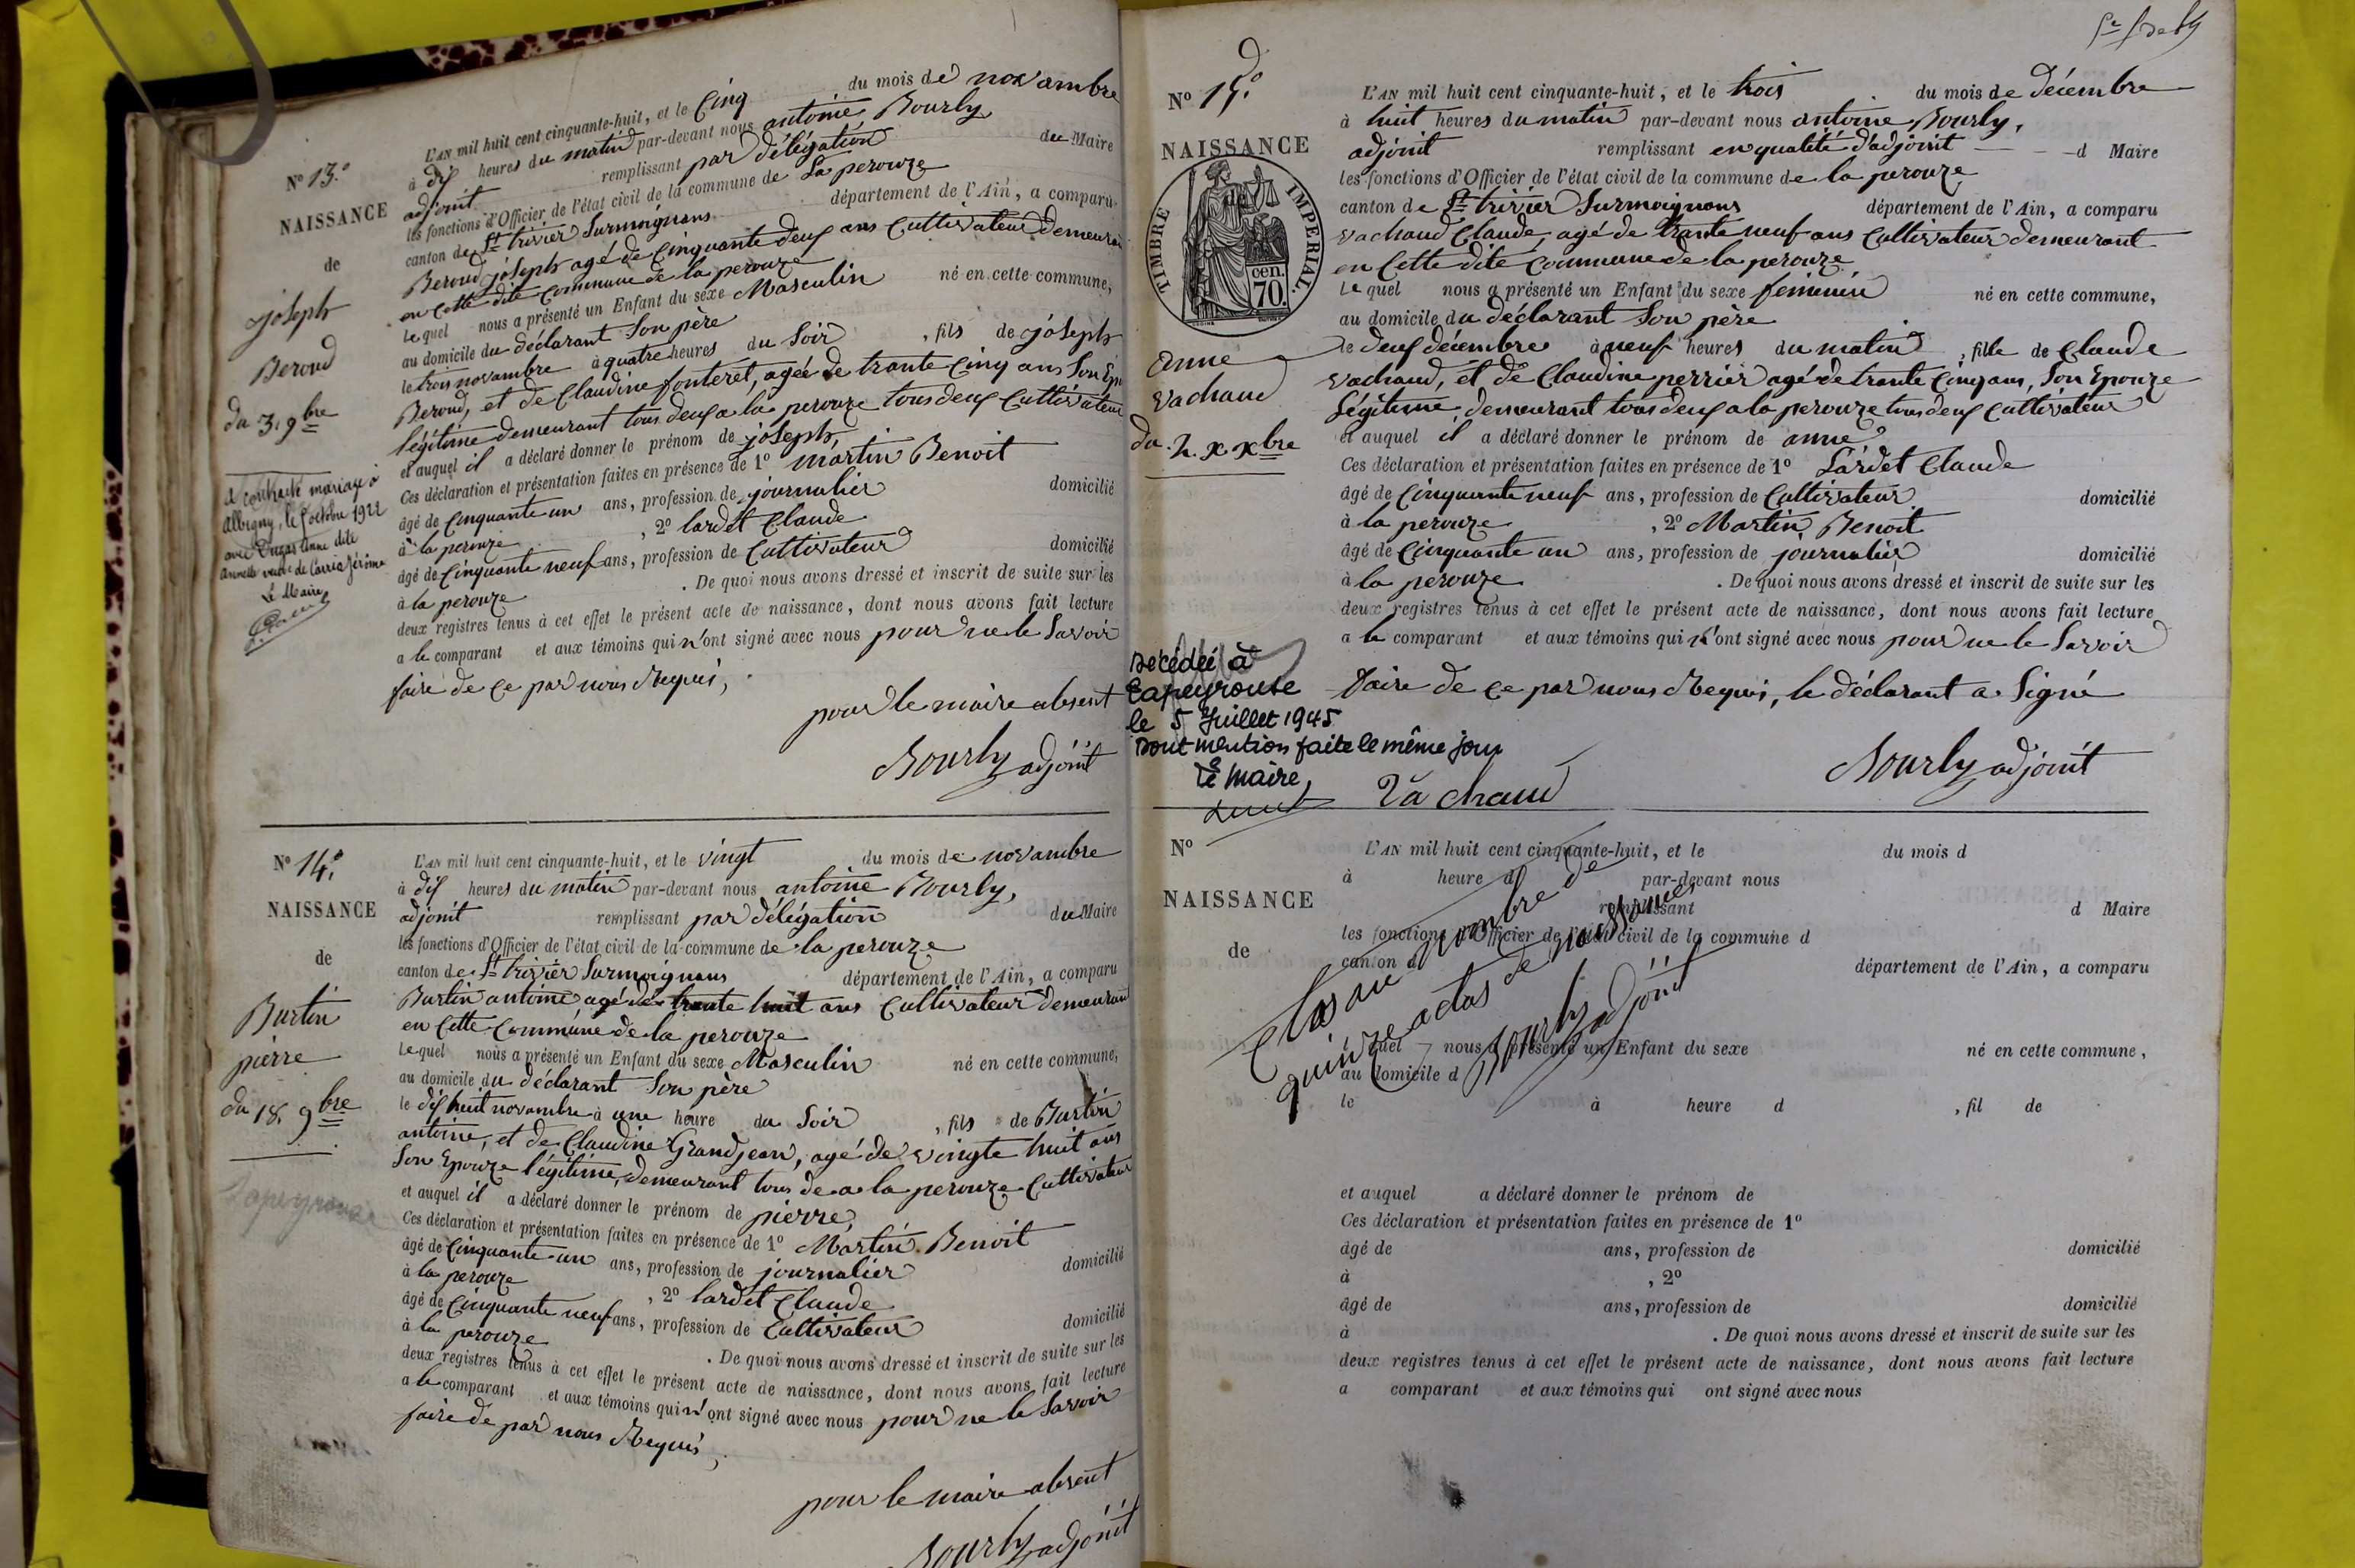 N° 13.
NAISSANCE
de
joseph
Beroud
du 3. 9bre
a contracté mariage à
Albigny, le octobre 1922
avec Dugas Anne dite
veuve de Carria Jérôme
Le Maire
L'AN mil huit cent cinquante-huit, et le Cinq du mois de novambre
à dix heures du matin par-devant nous antoine Bourly,
adjoint remplissant par délégation du Maire
les fonctions d'Officier de l'état civil de la commune de La perouze
canton de St trivier Surmoignans département de l'Ain, a comparu
Beroud joseph agé de Cinquante deux ans Cultivateur demeurant
en Cette dite Commune de la perouze
Lequel nous a présenté un Enfant du sexe Masculin né en cette commune,
au domicile du déclarant Son père
le trois novambre à quatre heures du Soir, fils de joseph
Beroud, et de Claudine fonteret, agée de trante Cinq ans Son Ep
légitime demeurant tous deux a la perouze tous deux Cultivateur
et auquel il a déclaré donner le prénom de joseph,
Ces déclaration et présentation faites en présence de 1° martin Benoit
âgé de Cinquante un ans, profession de journalier domicilié
à la perouze, 2° lardet Claude
âgé de Cinquante neuf ans, profession de Cultivateur domicilié
à la perouze. De quoi nous avons dressé et inscrit de suite sur les
deux registres tenus à cet effet le présent acte de naissance, dont nous avons fait lecture
a le comparant et aux témoins qui n'ont signé avec nous pour ne le Savoir
faire de Ce par nous Requis,
pour le maire absent
Bourly adjoint
N° 14.
NAISSANCE
de
Burtin
pierre
du 18. 9bre
Lapeyrouse
L'AN mil huit cent cinquante-huit, et le vingt du mois de novambre
à dix heures du matin par-devant nous antoine Bourly,
adjoint remplissant par délégation du Maire
les fonctions d'Officier de l'état civil de la commune de la perouze
canton de St trivier Surmoignans département de l'Ain, a comparu
Burtin antoine, agé de trante huit ans Cultivateur demeurant
en Cette Commune de la perouze
Lequel nous a présenté un Enfant du sexe Masculin né en cette commune,
au domicile du déclarant Son père
le dix huit novambre à une heure du Soir, fils de Burtin
antoine, et de Claudine Grandjean, agé de vingte huit ans
Son Epouze légitime, demeurant tous de a la perouze Cultivateur
et auquel il a déclaré donner le prénom de pierre,
Ces déclaration et présentation faites en présence de 1° Martin Benoit
âgé de Cinquante un ans, profession de journalier domicilié
à la perouze, 2° lardet Claude
âgé de Cinquante neuf ans, profession de Cultivateur domicilié
à la perouze. De quoi nous avons dressé et inscrit de suite sur les
deux registres tenus à cet effet le présent acte de naissance, dont nous avons fait lecture
a le comparant et aux témoins qui n'ont signé avec nous pour ne le Savoir
faire de par nous Requis,
pour le maire absent
Bourly adjoint
N° 15.
NAISSANCE
de
TIMBRE IMPERIAL.
cen.
70.
Anne
Vachaud
du 2. Xbre
L'AN mil huit cent cinquante-huit, et le trois du mois de Décembre
à huit heures du matin par-devant nous antoine Bourly,
adjoint remplissant en qualité d'adjoint d Maire
les fonctions d'Officier de l'état civil de la commune de la perouze
canton de St trivier Surmoignans département de l'Ain, a comparu
vachaud Claude, agé de trante neuf ans Cultivateur demeurant
en Cette dite Commune de la perouze
Lequel nous a présenté un Enfant du sexe feminin né en cette commune,
au domicile du déclarant Son père
le deux décembre à neuf heures du matin, fille de Claude
vachaud, et de Claudine perrier agé de trante Cinq ans, Son Epouze
légitime, demeurant tous deux a la perouze tous deux Cultivateur
et auquel il a déclaré donner le prénom de anne
Ces déclaration et présentation faites en présence de 1° Lardet Claude
âgé de Cinquante neuf ans, profession de Cultivateur domicilié
à la perouze, 2° Martin Benoit
âgé de Cinquante un ans, profession de journalier domicilié
à la perouze. De quoi nous avons dressé et inscrit de suite sur les
deux registres tenus à cet effet le présent acte de naissance, dont nous avons fait lecture
a le comparant et aux témoins qui n'ont signé avec nous pour ne le Savoir
faire de Ce par nous Requis, le déclarant a Signé
Décédée à
Lapeyrouse
le 5 Juillet 1945
Dont mention faite le même jour
Le Maire,
Vachaud
Bourly adjoint
N°
NAISSANCE
de
L'AN mil huit cent cinquante-huit, et le du mois d
à heure d par-devant nous
remplissant d Maire
les fonctions d'Officier de l'état civil de la commune d
canton d département de l'Ain, a comparu
Clos au nombre de
quinze actes de naissances
Bourly adjoint
Lequel nous a présenté un Enfant du sexe né en cette commune,
au domicile d
le à heure d, fil de
et auquel a déclaré donner le prénom de
Ces déclaration et présentation faites en présence de 1°
âgé de ans, profession de domicilié
à, 2°
âgé de ans, profession de domicilié
à. De quoi nous avons dressé et inscrit de suite sur les
deux registres tenus à cet effet le présent acte de naissance, dont nous avons fait lecture
a comparant et aux témoins qui ont signé avec nous